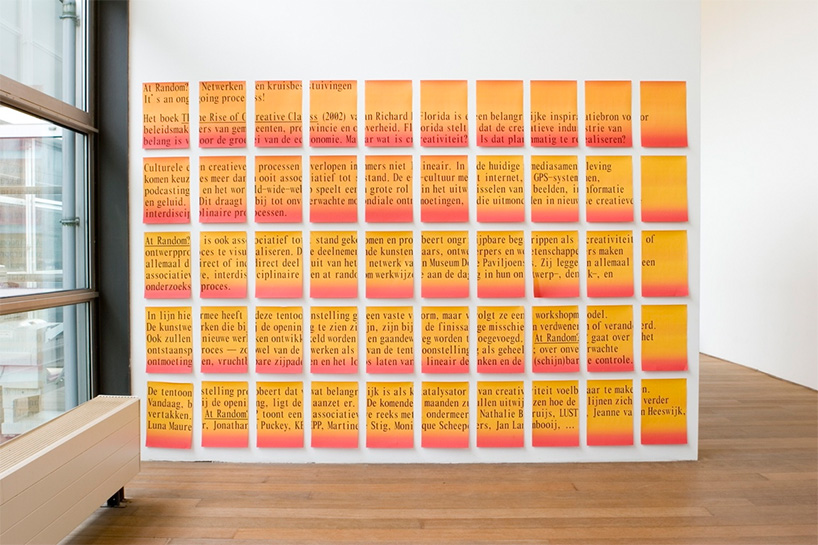 At Random? Netwerken en kruisbestuivingen
It's an ongoing process!
Het boek The Rise of Creative Classs (2002) van Richard Florida is een belangrijke inspiratiebron voor
beleidsmakers van gemeenten, provincie en overheid. Florida stelt dat de creatieve industrie van
belang is voor de groei van de economie. Maar wat is creativiteit? Is dat planmatig te realiseren?
Culturele en creatieve processen verlopen immers niet lineair. In de huidige mediasamenleving
komen keuzes meer dan ooit associatief tot stand. De e-cultuur met internet, GPS-systemen,
podcasting en het world-wide-web speelt een grote rol in het uitwisselen van beelden, informatie
en geluid. Dit draagt bij tot onverwachte mondiale ontmoetingen, die uitmonden in nieuwe creatieve
interdisciplinaire processen.
At Random? is ook associatief tot stand gekomen en probeert ongrijpbare begrippen als creativiteit of
ontwerpproces te visualiseren. De deelnemende kunstenaars, ontwerpers en wetenschappers maken
allemaal direct of indirect deel uit van het netwerk van Museum De Paviljoens. Zij leggen allemaal een
associatieve, interdisciplinaire en at random werkwijze aan de dag in hun ontwerp-, denk-, en
onderzoeksproces.
In lijn hiermee heeft deze tentoonstelling geen vaste vorm, maar volgt ze een workshopmodel.
De kunstwerken die bij de opening te zien zijn, zijn bij de finissage misschien verdwenen of veranderd.
Ook zullen nieuwe werken ontwikkeld worden en gaandeweg worden toegevoegd. At Random? gaat over het
ontstaansproces — zowel van de werken als van de tentoonstelling als geheel; over onverwachte
ontmoetingen, vruchtbare zijpaden en het loslaten van lineair denken en de (schijn)bare controle.
De tentoonstelling probeert dat wat belangrijk is als katalysator van creativiteit voelbaar te maken.
Vandaag, bij de opening, ligt de aanzet er. De komende maanden zullen uitwijzen hoe de lijnen zich verder
vertakken. At Random? toont een associatieve reeks met ondermeer: Nathalie Bruijs, LUST, Jeanne van Heeswijk,
Luna Maurer, Jonathan Puckey, KEPP, Martine Stig, Monique Scheepers, Jan Lambooij, ...